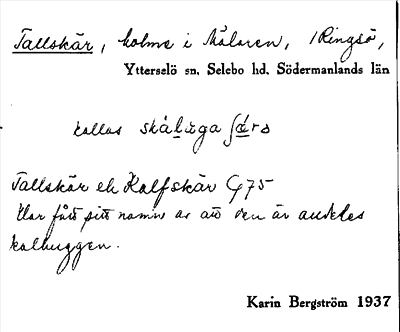 Tallskär, holme i Mälaren, /Ringsö,
Ytterselö sn. Selebo hd. Södermanlands län
kallas
Tallskär el. Kalfskär G75
Har fått sitt namn av att den är alldeles
kalhuggen.
Karin Bergström 1937